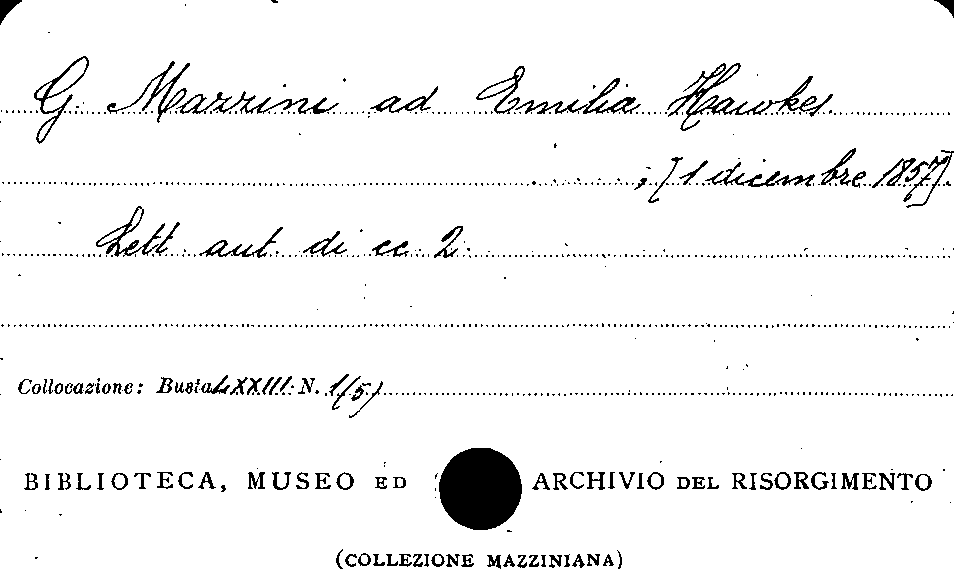 G. Mazzini ad Emilia Hawkes.
......, [1 dicembre 1857].
Lett. aut. di cc. 2.
Collocazione: Busta LXXIII N. 1(5)
BIBLIOTECA, MUSEO ED ARCHIVIO DEL RISORGIMENTO
(COLLEZIONE MAZZINIANA)